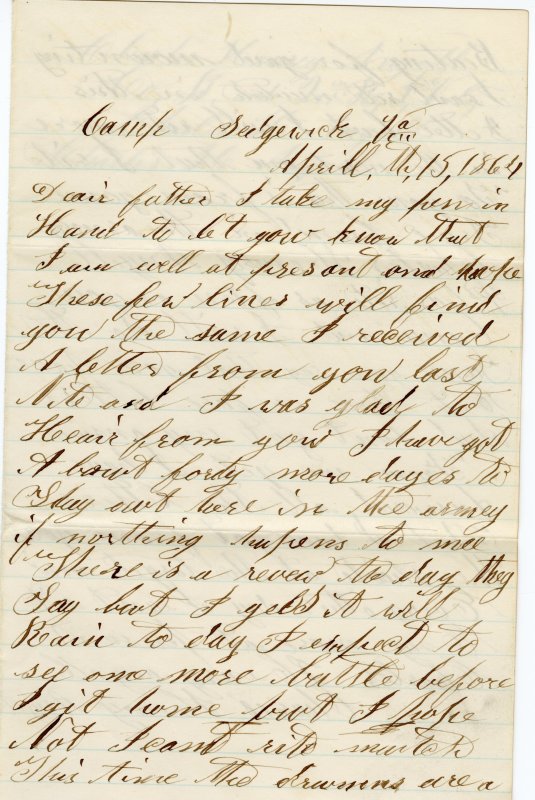 Camp Sedgewick Va
Aprill, th, 15, 1864
Dair father I take my pen in
Hand to let yow know that
I am well at presant and hope
These few lines will find
you the same I received
A letter from you last
Nite and I was glad to
Heair from yow I have got
A bowt forty more dayes to
Stay owt here in the armey
if northing hapens to mee
There is a revew to day they
Say but I gess it will
Rain to day I expect to
see one more battle before
I git home but I hope
Not I cant rite mutch
This time the drumms are a